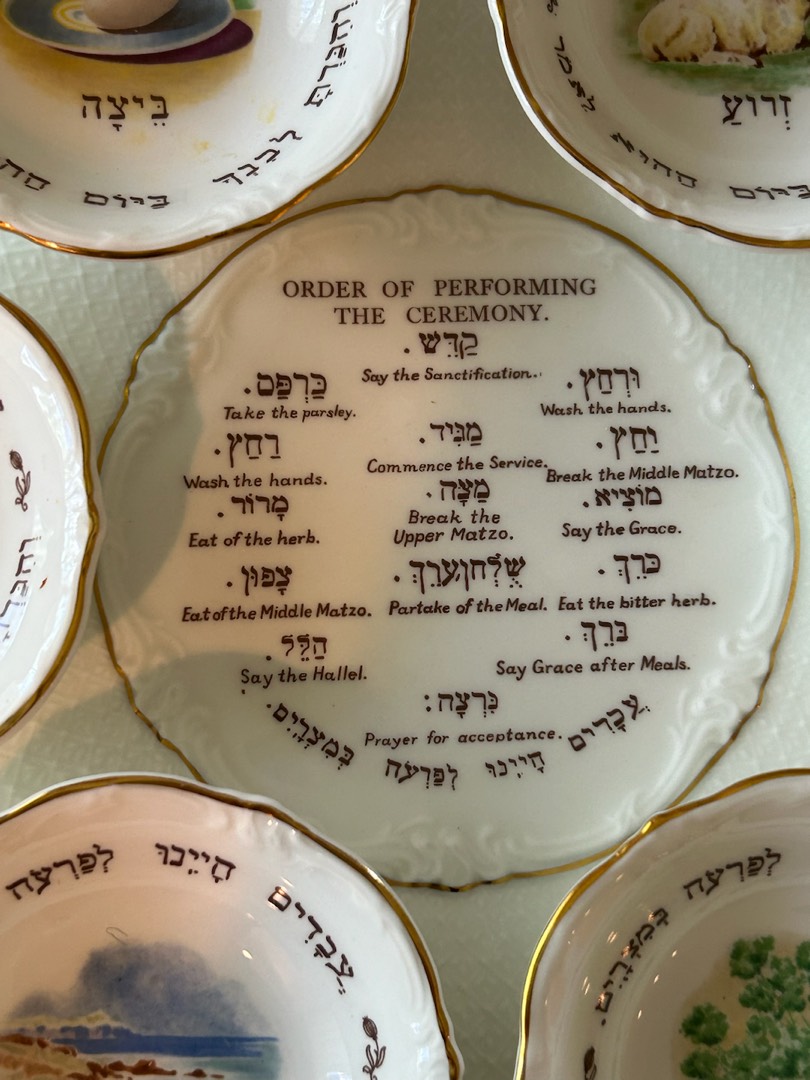 בֵּיצָה
זְרוֹעַ
ORDER OF PERFORMING
THE CEREMONY.
קַדֵּשׁ.
Say the Sanctification.
וּרְחַץ.
Wash the hands.
כַּרְפַּס.
Take the parsley.
יַחַץ.
Break the Middle Matzo.
מַגִּיד.
Commence the Service.
רַחַץ.
Wash the hands.
מוֹצִיא.
Say the Grace.
מַצָּה.
Break the
Upper Matzo.
מָרוֹר.
Eat of the herb.
כֹּרֵךְ.
Eat the bitter herb.
שֻׁלְחָן עָרֵךְ.
Partake of the Meal.
צָפוּן.
Eat of the Middle Matzo.
בָּרֵךְ.
Say Grace after Meals.
הַלֵּל.
Say the Hallel.
נִרְצָה:
Prayer for acceptance.
עֲבָדִים הָיִינוּ לְפַרְעֹה בְּמִצְרָיִם.
עֲבָדִים הָיִינוּ לְפַרְעֹה
לְפַרְעֹה בְּמִצְרָיִם.